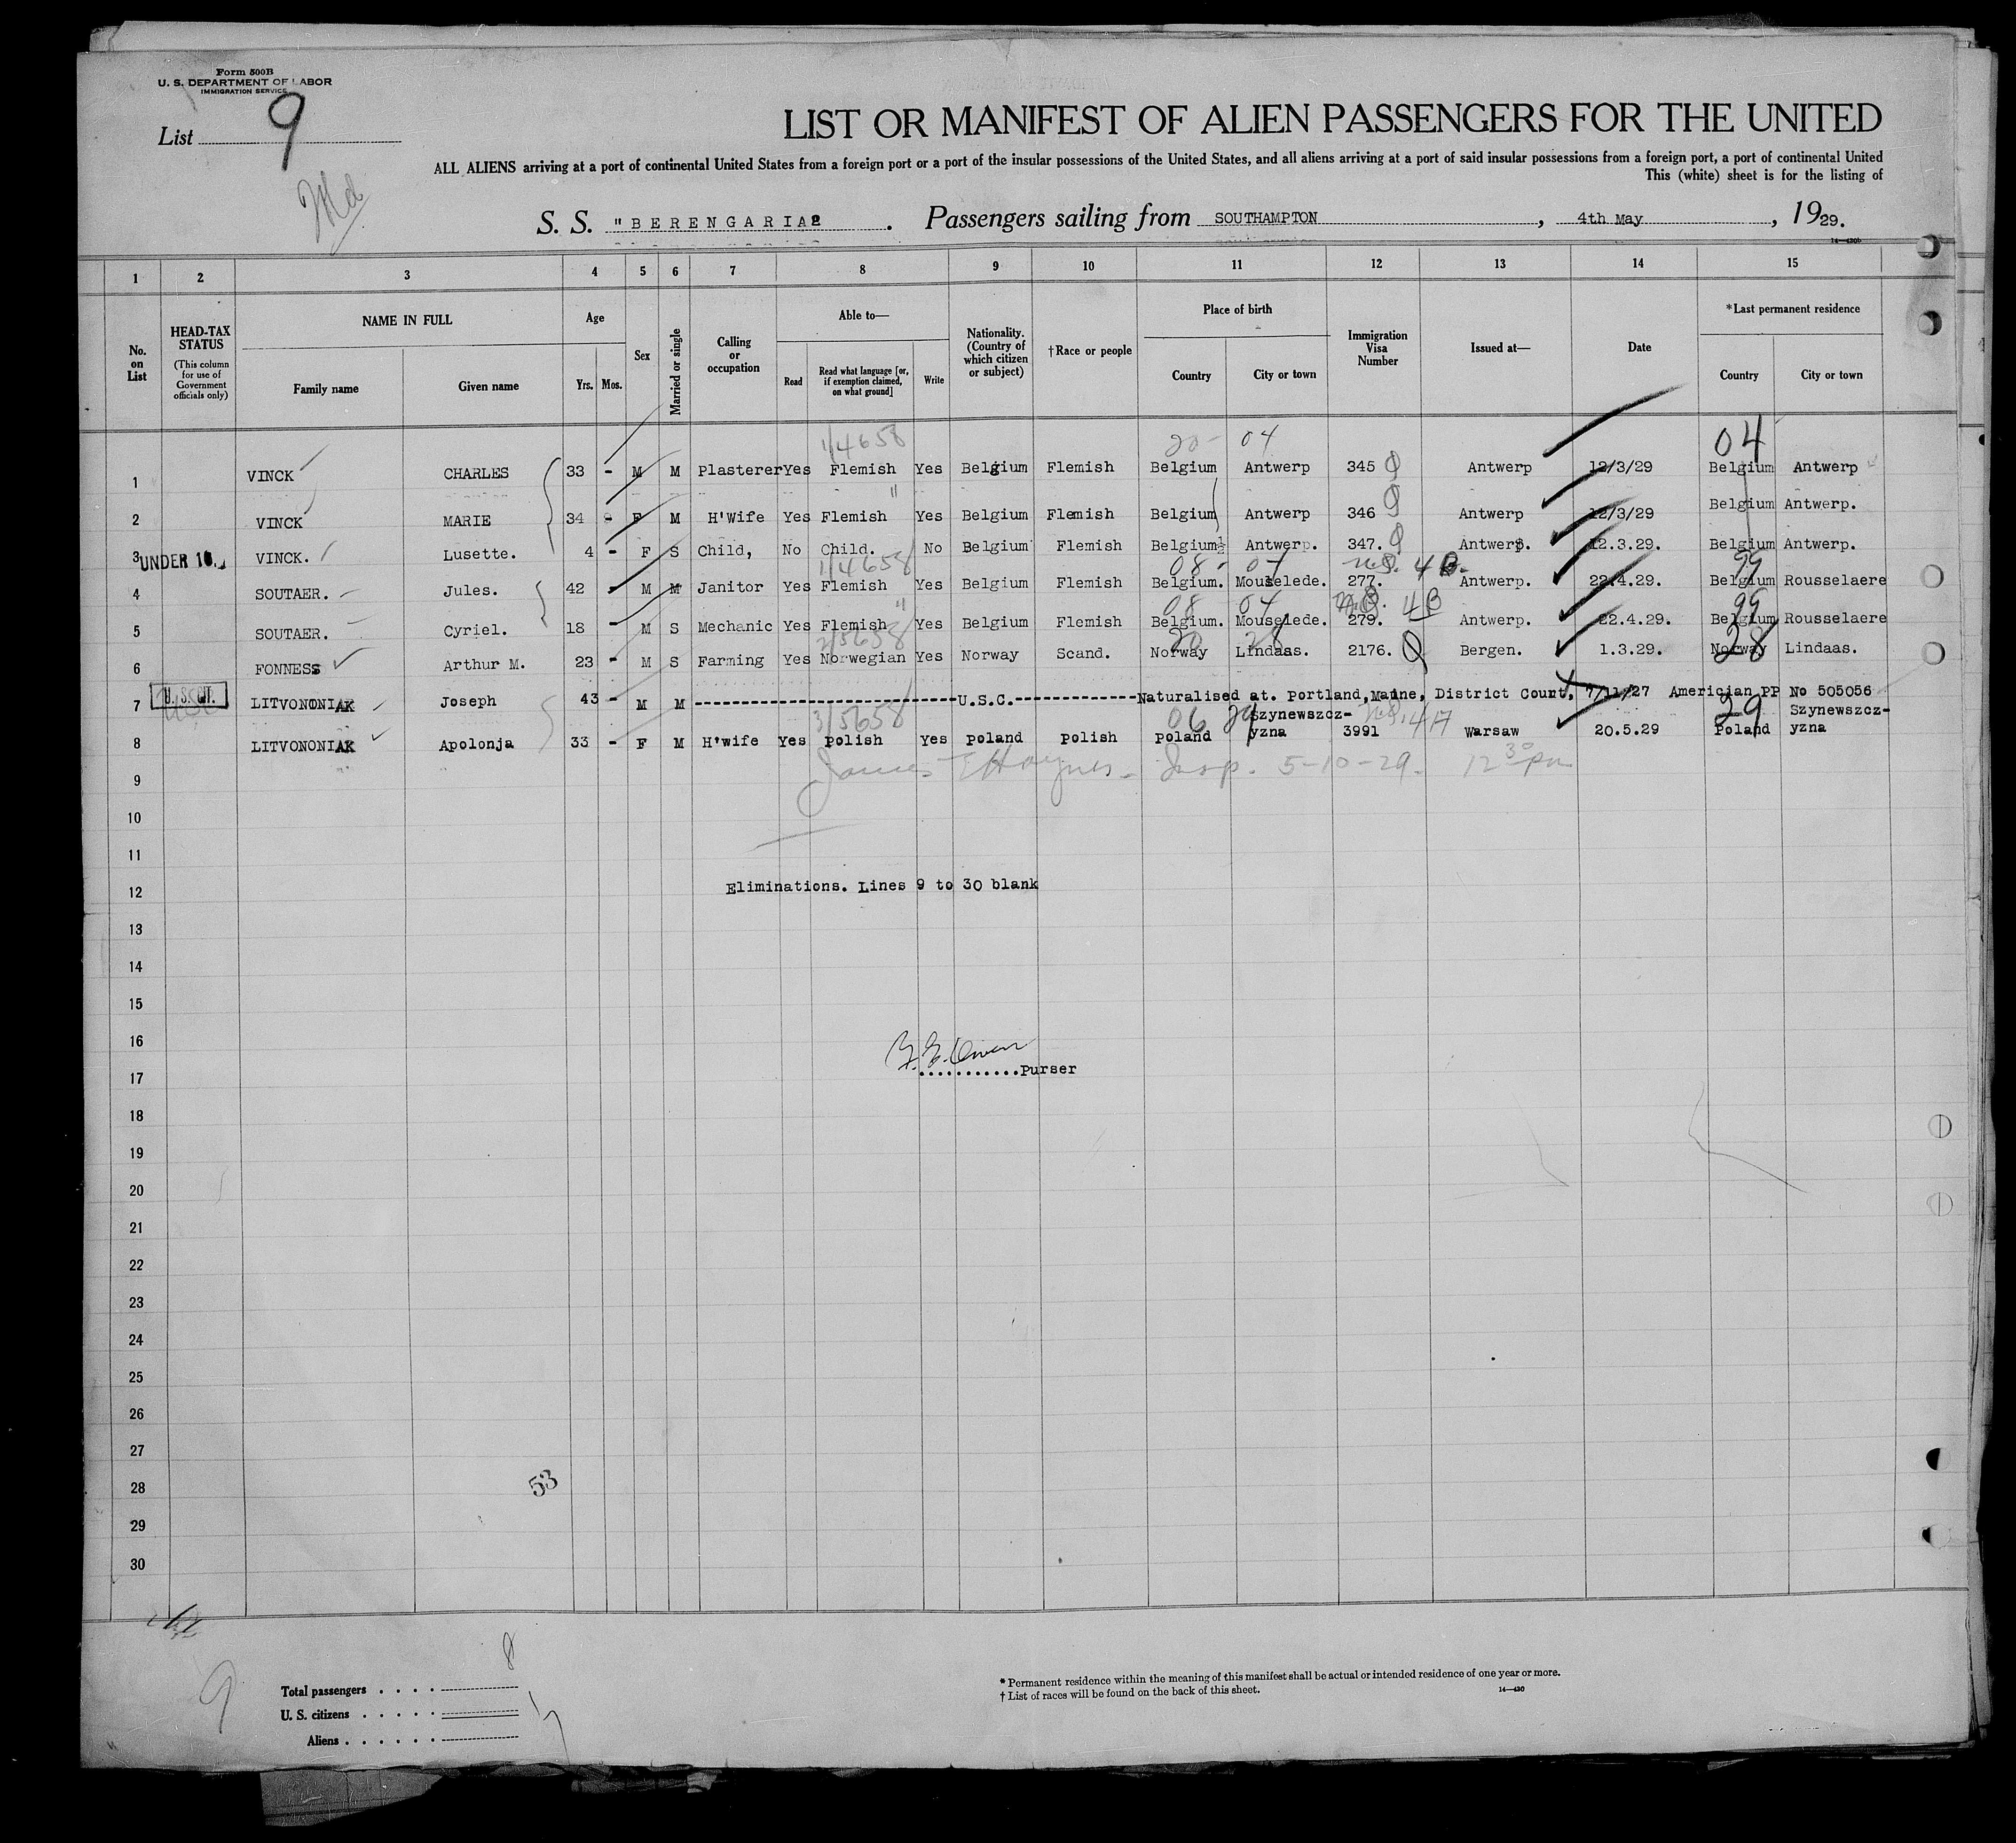 Form 500B
U. S. DEPARTMENT OF LABOR
IMMIGRATION SERVICE
List 9
LIST OR MANIFEST OF ALIEN PASSENGERS FOR THE UNITED
ALL ALIENS arriving at a port of continental United States from a foreign port or a port of the insular possessions of the United States, and all aliens arriving at a port of said insular possessions from a foreign port, a port of continental United
This (white) sheet is for the listing of
S. S. "BERENGARIA" . Passengers sailing from SOUTHAMPTON , 4th May , 1929.
14—430b
1 2 3 4 5 6 7 8 9 10 11 12 13 14 15
No. on List
HEAD-TAX STATUS (This column for use of Government officials only)
NAME IN FULL
Family name Given name
Age
Yrs. Mos.
Sex
Married or single
Calling or occupation
Able to—
Read
Read what language [or, if exemption claimed, on what ground]
Write
Nationality. (Country of which citizen or subject)
†Race or people
Place of birth
Country City or town
Immigration Visa Number
Issued at—
Date
*Last permanent residence
Country City or town
1/4658 20- 04 04
1 VINCK CHARLES 33 - M M Plasterer Yes Flemish Yes Belgium Flemish Belgium Antwerp 345 Antwerp 12/3/29 Belgium Antwerp
"
2 VINCK MARIE 34 - F M H'Wife Yes Flemish Yes Belgium Flemish Belgium Antwerp 346 Antwerp 12/3/29 Belgium Antwerp.
3 UNDER 16. VINCK. Lusette. 4 - F S Child, No Child. No Belgium Flemish Belgium Antwerp. 347. Antwerp. 12.3.29. Belgium Antwerp.
1/4658 08- 04 4B. 99
4 SOUTAER. Jules. 42 - M M Janitor Yes Flemish Yes Belgium Flemish Belgium. Mouselede. 277. Antwerp. 22.4.29. Belgium Rousselaere
" 08 04 4B 99
5 SOUTAER. Cyriel. 18 - M S Mechanic Yes Flemish Yes Belgium Flemish Belgium. Mouselede. 279. Antwerp. 22.4.29. Belgium Rousselaere
2/5658 20 28 28
6 FONNESS Arthur M. 23 - M S Farming Yes Norwegian Yes Norway Scand. Norway Lindaas. 2176. Bergen. 1.3.29. Norway Lindaas.
7 U. S. CIT. LITVONONIAK Joseph 43 - M M ---U.S.C.---Naturalised at. Portland, Maine, District Court, 7/11/27 Americian PP No 505056
3/5658 06 29 29
8 LITVONONIAK Apolonja 33 - F M H'wife Yes Polish Yes Poland Polish Poland Szynewszcz-yzna 3991 Warsaw 20.5.29 Poland Szynewszcz-yzna
James E Haynes - Insp. 5-10-29. 12 30 pm
9
10
11
12 Eliminations. Lines 9 to 30 blank
13
14
15
16
17 ...........Purser
18
19
20
21
22
23
24
25
26
27
28 53
29
30
9
Total passengers . . . . 8
U. S. citizens . . . . . 1
Aliens . . . . . . 7
* Permanent residence within the meaning of this manifest shall be actual or intended residence of one year or more.
† List of races will be found on the back of this sheet.
14—430